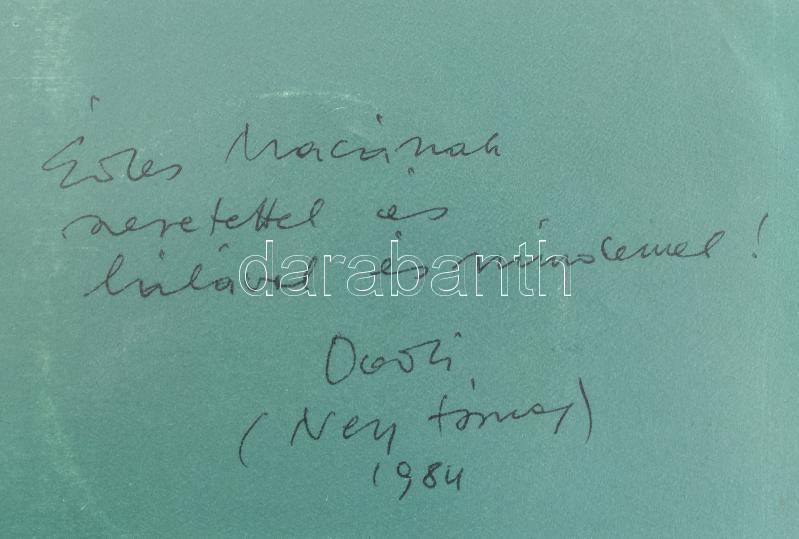 Édes Macának
szeretettel és
hálával és mindennel!
(Ney Tamás)
1984
darabanth